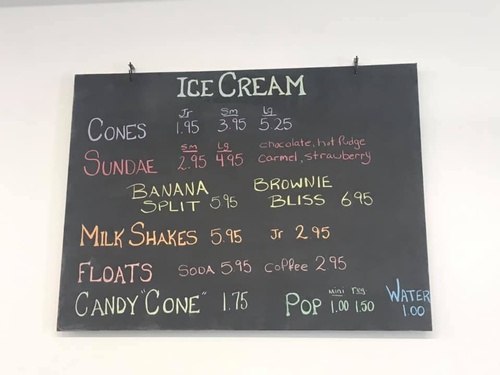 ICE CREAM
Jr Sm Lg
CONES 1.95 3.95 5.25
Sm Lg chocolate, hot fudge
SUNDAE 2.95 4.95 carmel, strawberry
BANANA BROWNIE
SPLIT 5.95 BLISS 6.95
MILK SHAKES 5.95 Jr 2.95
FLOATS SODA 5.95 coffee 2.95
mini reg WATER
CANDY "CONE" 1.75 POP 1.00 1.50 1.00